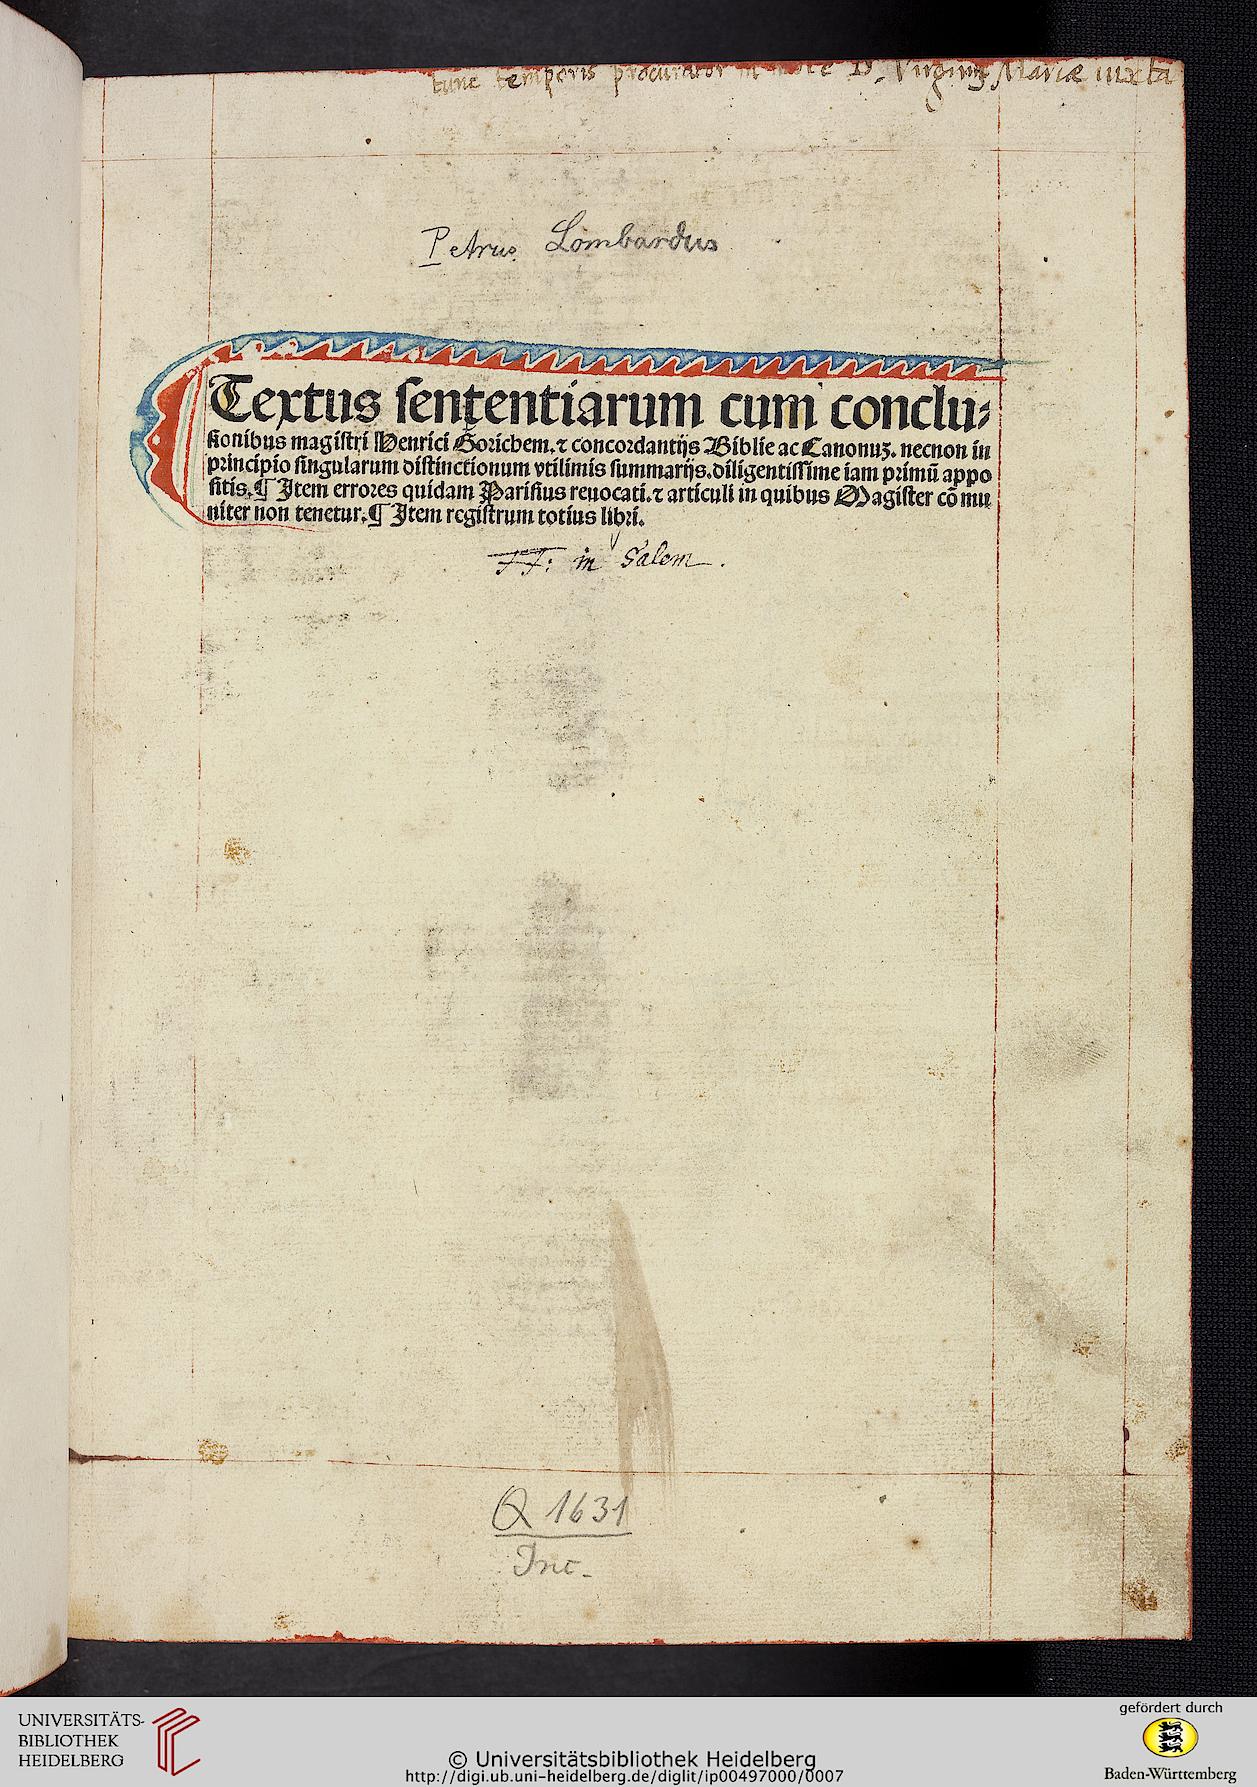 tunc temporis procurator in D. Virginis Mariæ iuxta
Petrus Lombardus
Textus sententiarum cum conclu⸗
sionibus magistri Henrici Gorichem. ⁊ concordantijs Biblie ac Canonuꝫ. necnon in
principio singularum distinctionum vtilimis summarijs. diligentissime iam primū appo
sitis. ¶ Item errores quidam Parisius reuocati. ⁊ articuli in quibus Magister cō mu
niter non tenetur. ¶ Item registrum totius libri.
FF: in Salem.
Q 1631
Inc.
UNIVERSITÄTS-
BIBLIOTHEK
HEIDELBERG
© Universitätsbibliothek Heidelberg
http://digi.ub.uni-heidelberg.de/diglit/ip00497000/0007
gefördert durch
Baden-Württemberg